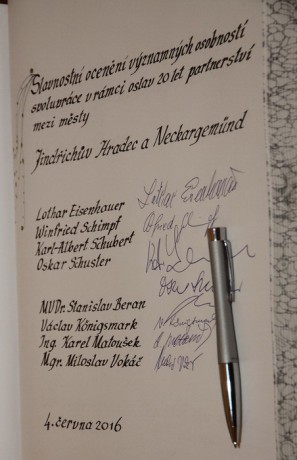 Slavnostní ocenění významných osobností
spolupráce v rámci oslav 20 let partnerství
mezi městy
Jindřichův Hradec a Neckargemünd
Lothar Eisenhauer
Winfried Schimpf
Karl-Albert Schubert
Oskar Schusler
MVDr. Stanislav Beran
Václav Königsmark
Ing. Karel Matoušek
Mgr. Miloslav Vokáč
4. června 2016
Lothar Eisenhauer